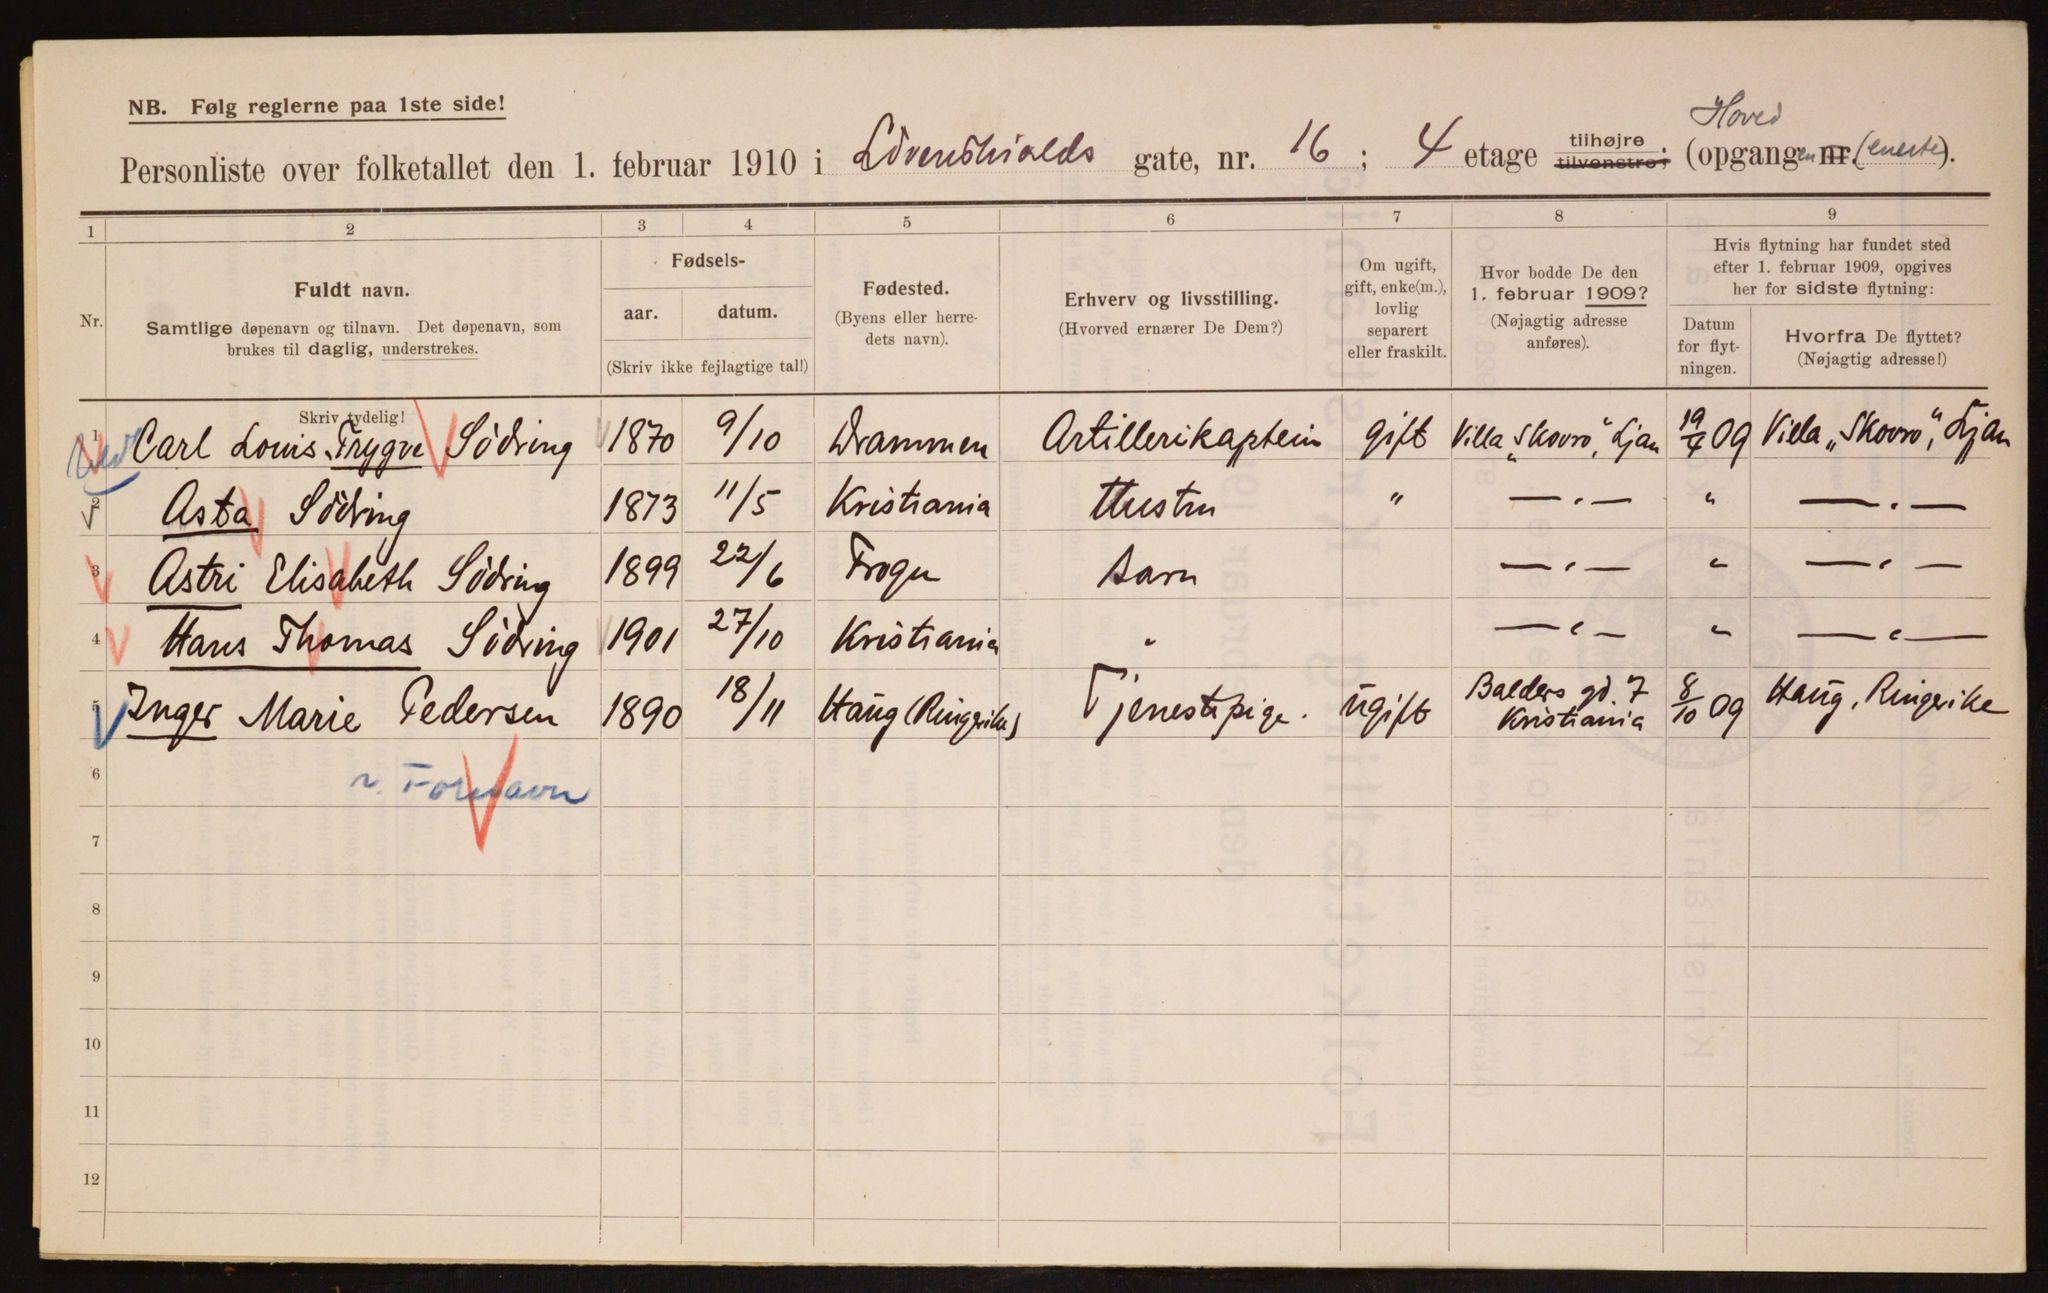 NB. Følg reglerne paa 1ste side!
Hoved
Personliste over folketallet den 1. februar 1910 i Lövenskiolds gate, nr. 16 ; 4 etage tilhøjre tilvenstre; (opgangen nr. (eneste).
1 2 3 4 5 6 7 8 9
Nr.
Fuldt navn.
Samtlige døpenavn og tilnavn. Det døpenavn, som
brukes til daglig, understrekes.
Fødsels-
aar. datum.
(Skriv ikke fejlagtige tal!)
Fødested.
(Byens eller herre-
dets navn).
Erhverv og livsstilling.
(Hvorved ernærer De Dem?)
Om ugift,
gift, enke(m.),
lovlig
separert
eller fraskilt.
Hvor bodde De den
1. februar 1909?
(Nøjagtig adresse
anføres).
Hvis flytning har fundet sted
efter 1. februar 1909, opgives
her for sidste flytning:
Datum
for flyt-
ningen.
Hvorfra De flyttet?
(Nøjagtig adresse!)
Skriv tydelig!
1 Carl Louis Trygve Södring 1870 9/10 Drammen Artillerikaptein gift Villa „Skovro", Ljan 19/4 09 Villa „Skovro", Ljan
2 Asta Södring 1873 11/5 Kristiania Hustru " — " — " — " —
3 Astri Elisabeth Södring 1899 22/6 Frogn Barn — " — " — " —
4 Hans Thomas Södring 1901 27/10 Kristiania " — " — " — " —
5 Inger Marie Pedersen 1890 18/11 Haug (Ringerike) Tjenestepige. ugift Balders gd. 7 Kristiania 8/10 09 Haug, Ringerike
6 n. Fornavn
7
8
9
10
11
12